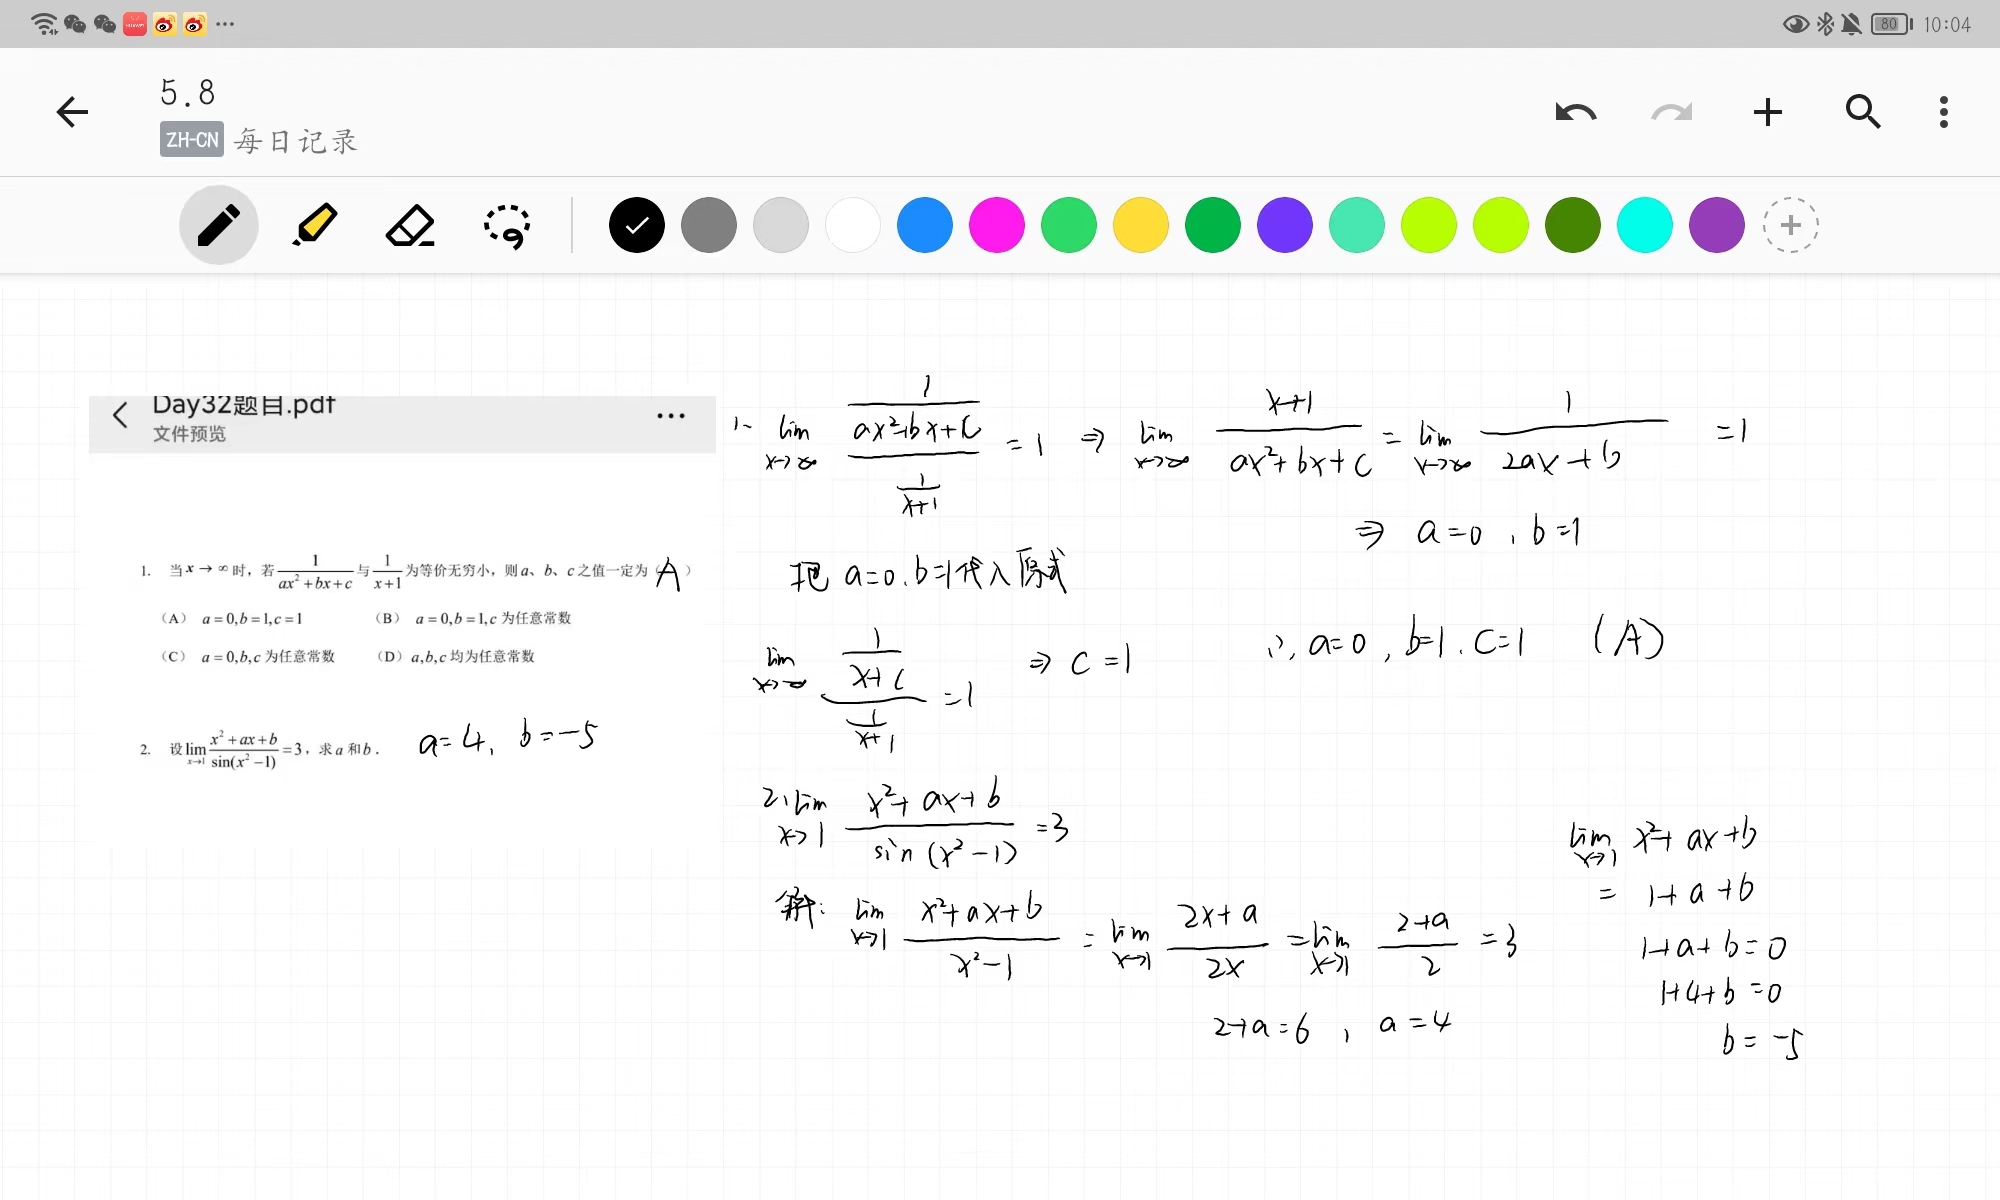 80 10:04
5.8
ZH-CN 每日记录
Day32题目.pdf
文件预览
1. 当 x → ∞ 时，若 1/(ax²+bx+c) 与 1/(x+1) 为等价无穷小，则 a、b、c 之值一定为（A）
（A） a=0,b=1,c=1 （B） a=0,b=1,c 为任意常数
（C） a=0,b,c 为任意常数 （D）a,b,c 均为任意常数
2. 设 lim x→1 (x²+ax+b)/sin(x²−1) =3，求 a 和 b． a=4, b=−5
1、 lim x→∞ (1/(ax²+bx+c))/(1/(x+1)) = 1 ⇒ lim x→∞ (x+1)/(ax²+bx+c) = lim x→∞ 1/(2ax+b) = 1
⇒ a=0 , b=1
把 a=0、b=1代入原式
lim x→∞ (1/(x+c))/(1/(x+1)) = 1 ⇒ c=1 ∴ a=0, b=1、c=1 (A)
2、lim x→1 (x²+ax+b)/(sin(x²−1)) = 3
解: lim x→1 (x²+ax+b)/(x²−1) = lim x→1 (2x+a)/(2x) = lim x→1 (2+a)/2 = 3
2+a=6 , a=4
lim x→1 x²+ax+b
= 1+a+b
1+a+b=0
1+4+b=0
b=−5